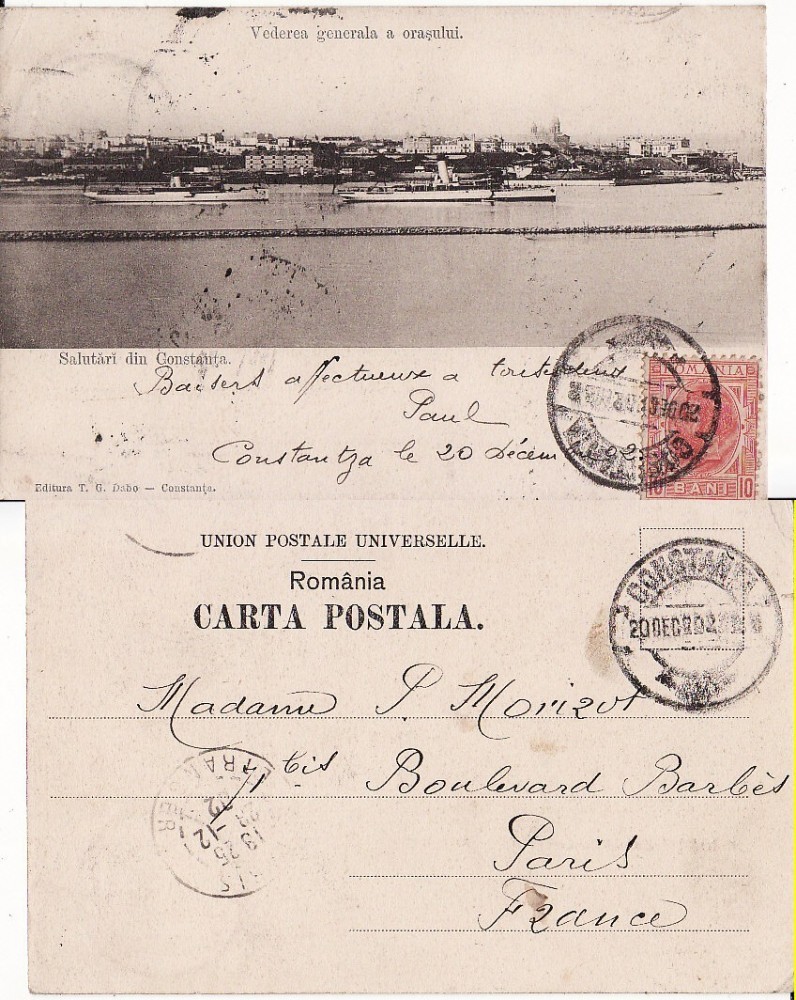 Vederea generala a orașului.
Salutări din Constanța.
Baisers affectueux a
Paul
Constantza le 20 Décem 02
Editura T. G. Dabo — Constanța.
ROMANIA
10 BANI 10
UNION POSTALE UNIVERSELLE.
România
CARTA POSTALA.
CONSTANTA
20 DEC 902
Madame P. Morizot
7 bis Boulevard Barbès
Paris
France
ETRANGER